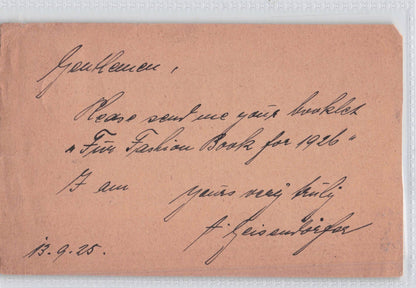 Gentlemen,
Please send me your booklet
„Fur Fashion Book for 1926"
I am yours very truly
A. Geisendörfer
13.9.25.